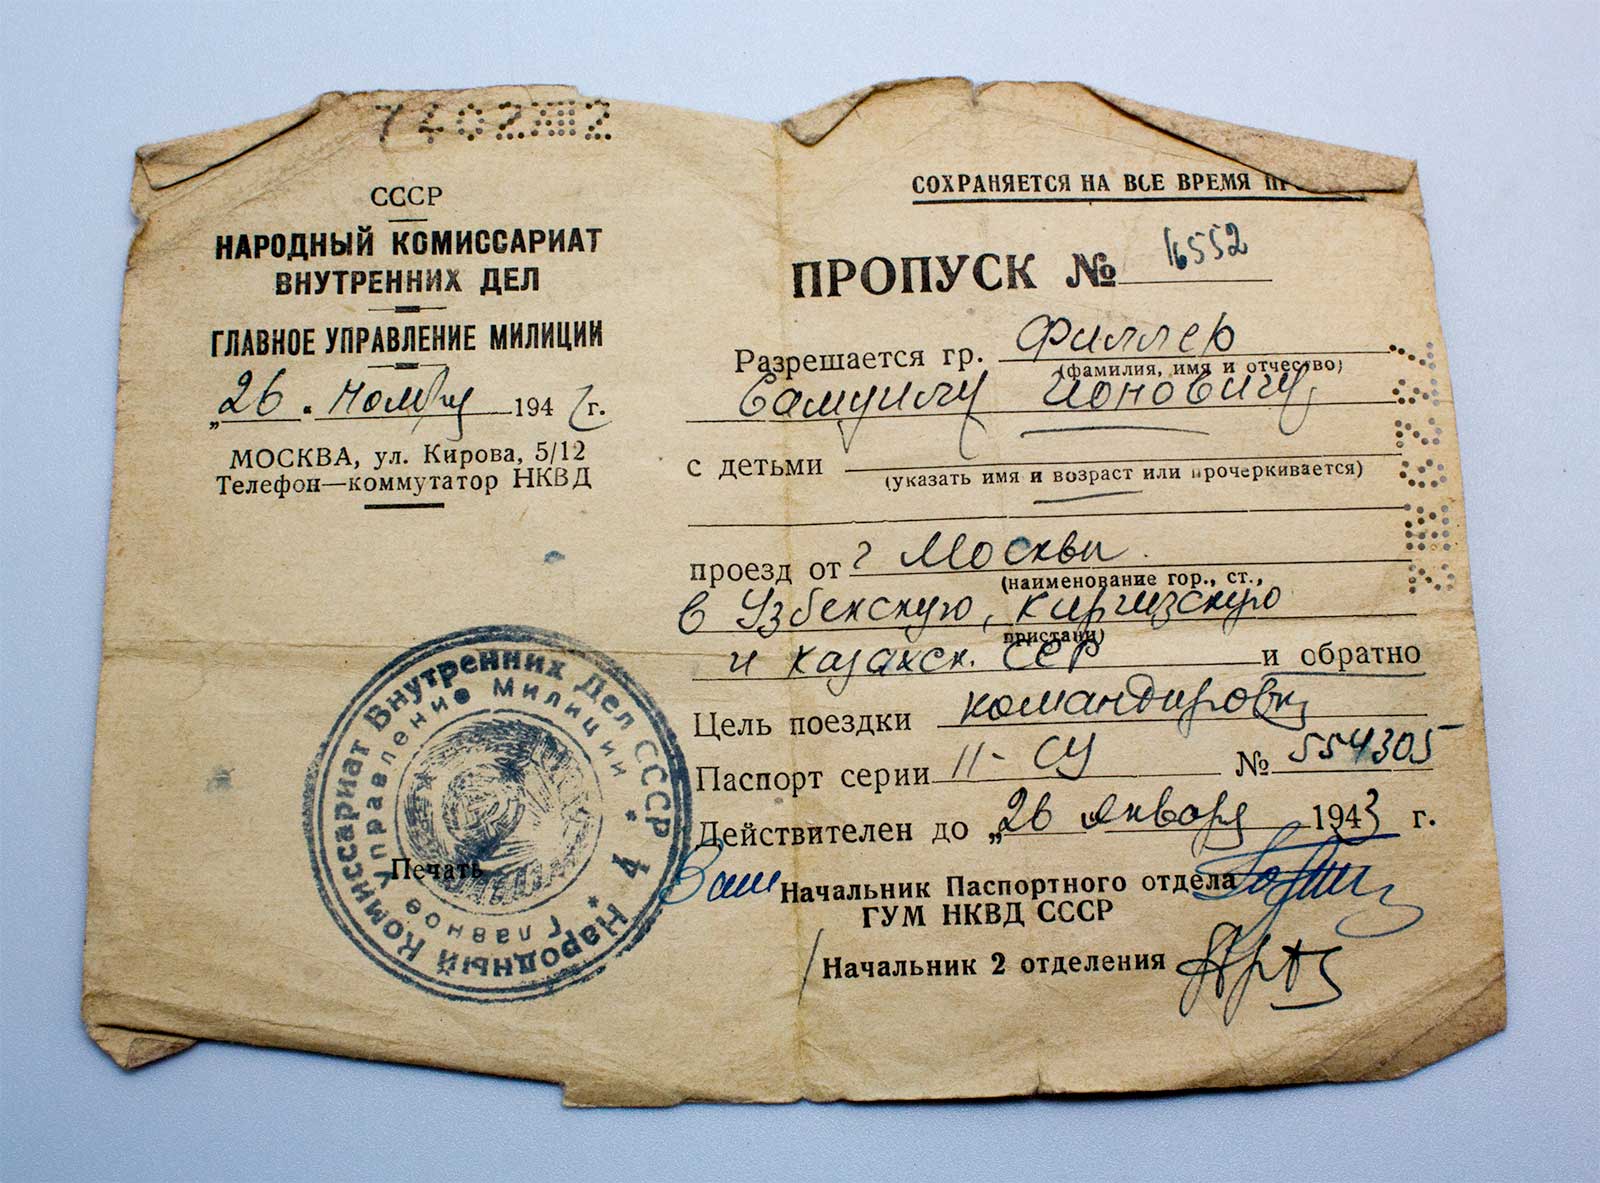 СССР
НАРОДНЫЙ КОМИССАРИАТ
ВНУТРЕННИХ ДЕЛ
ГЛАВНОЕ УПРАВЛЕНИЕ МИЛИЦИИ
„26. ноября 1942 г.
МОСКВА, ул. Кирова, 5/12
Телефон—коммутатор НКВД
Народный Комиссариат Внутренних Дел СССР
Главное Управление Милиции
Печать
СОХРАНЯЕТСЯ НА ВСЕ ВРЕМЯ
ПРОПУСК № 16552
Разрешается гр. Филлер
(фамилия, имя и отчество)
Самуилу Ионовичу
с детьми
(указать имя и возраст или прочеркивается)
проезд от г Москвы
(наименование гор., ст.,
в Узбекскую, Киргизскую
пристани)
и Казахск. ССР и обратно
Цель поездки командировка
Паспорт серии II-СУ № 554305
Действителен до „26 января 1943 г.
Зам Начальник Паспортного отдела
ГУМ НКВД СССР
Начальник 2 отделения